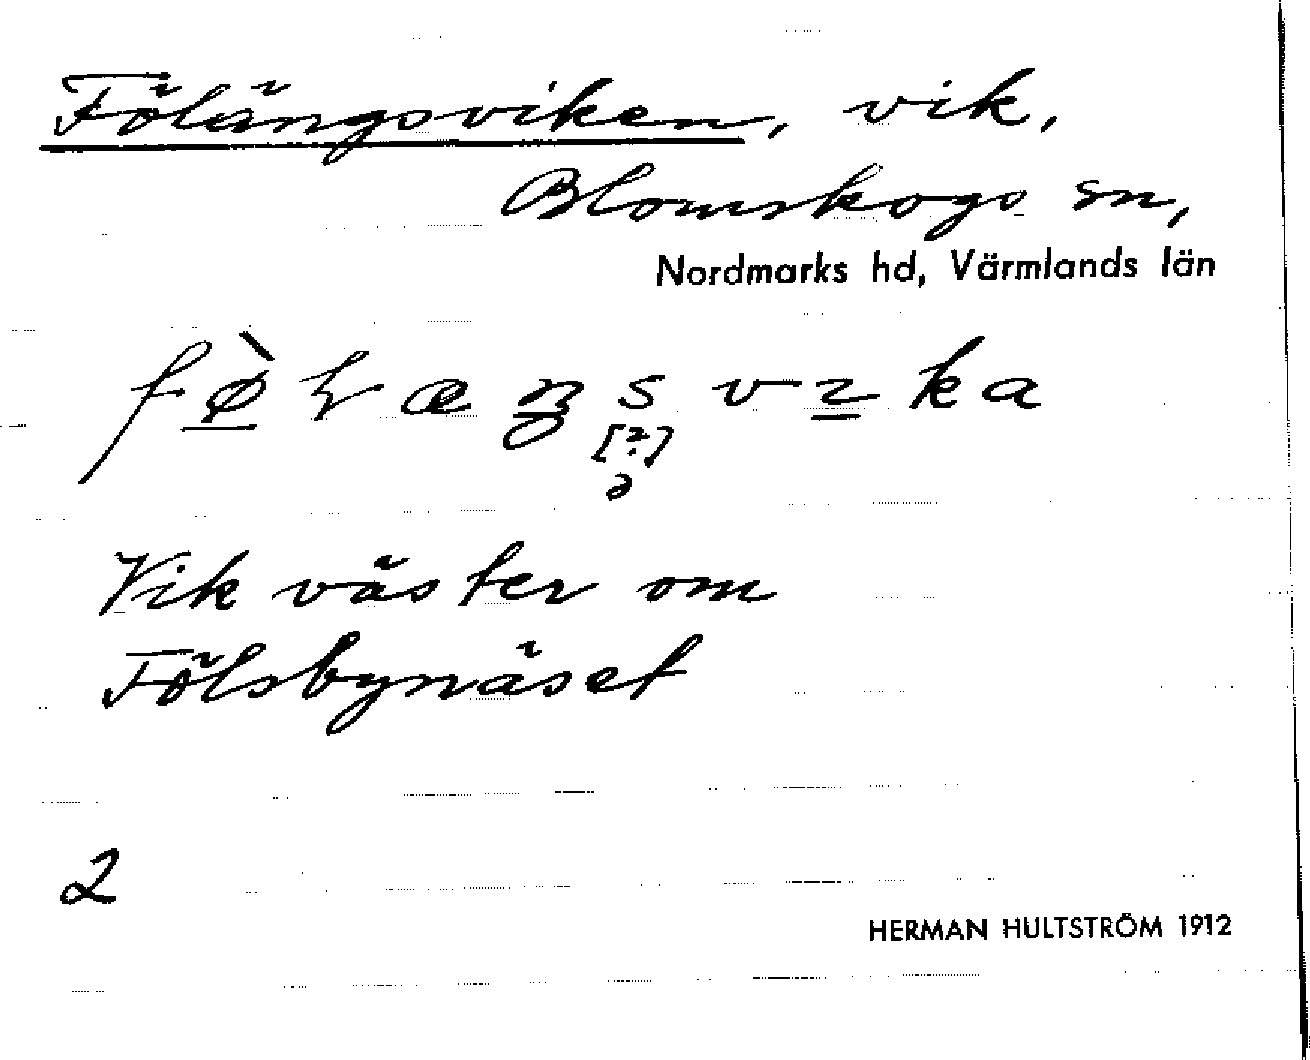 Fölängsviken, vik,
Blomskogs sn,
Nordmarks hd, Värmlands län
fø̀ɽæŋsvıka
[?]
ə
Vik väster om
Fölsbynäset
2
HERMAN HULTSTRÖM 1912